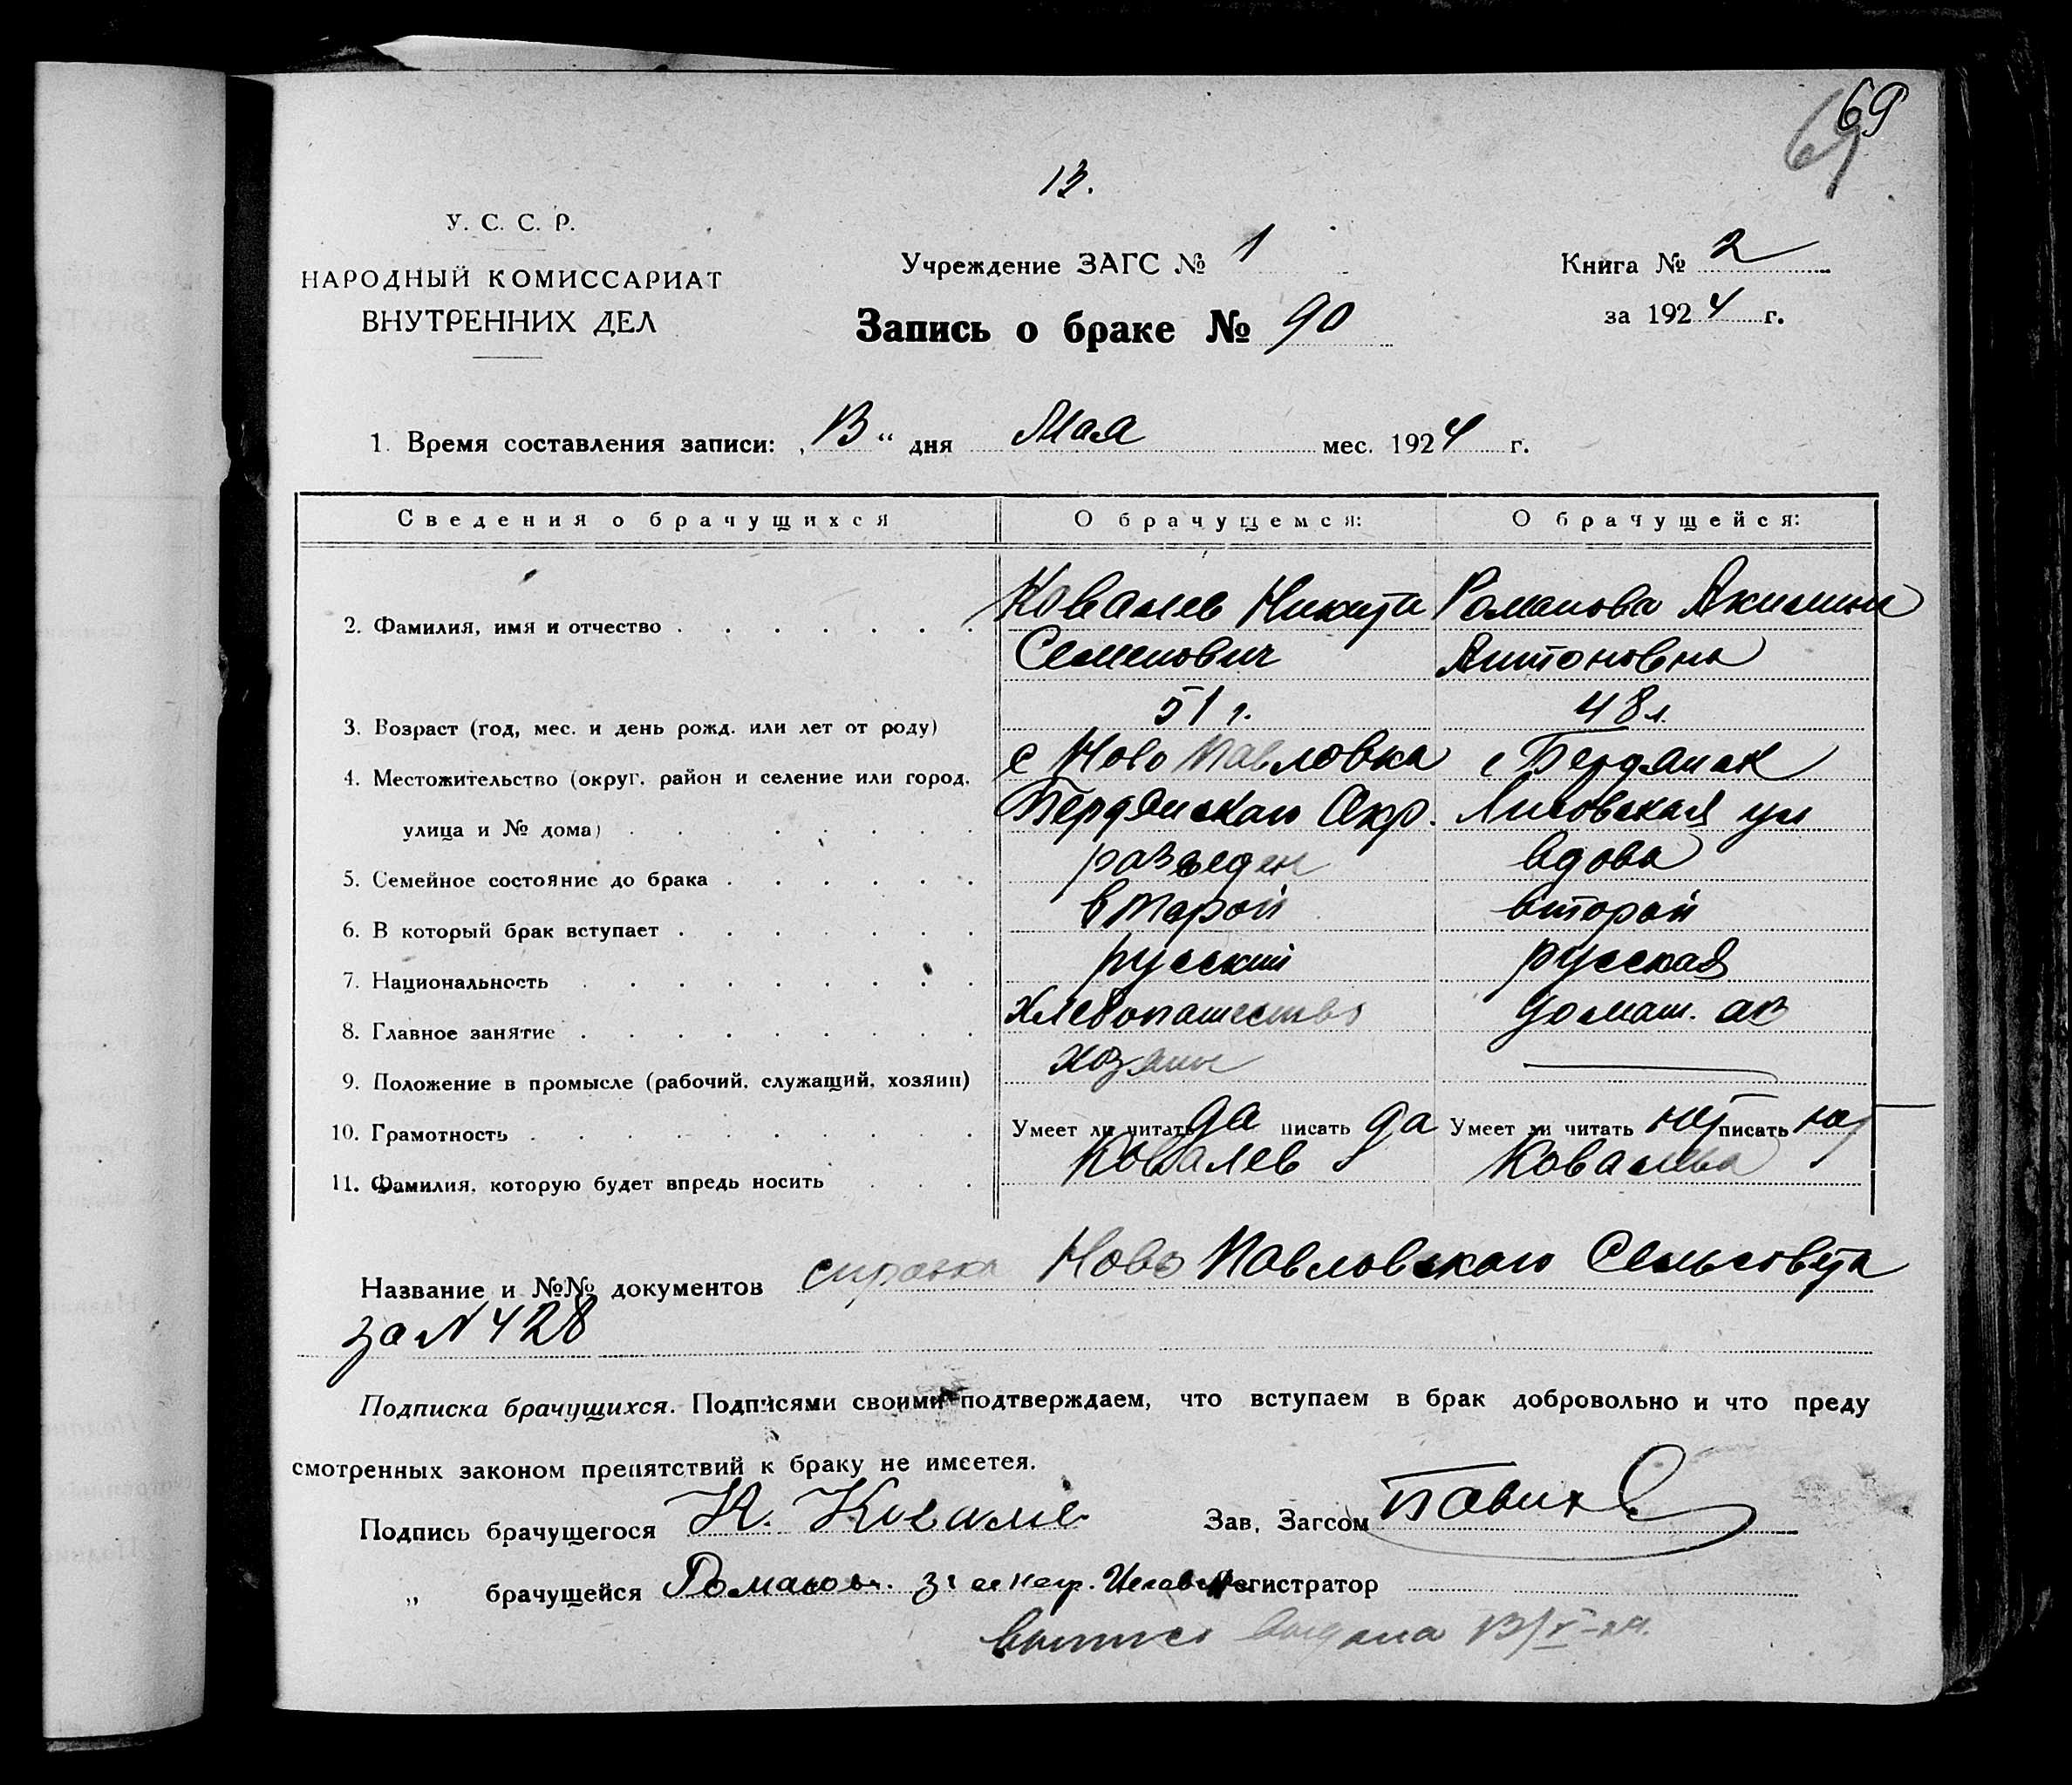 69
69
13.
У. С. С. Р.
НАРОДНЫЙ КОМИССАРИАТ
ВНУТРЕННИХ ДЕЛ
Учреждение ЗАГС № 1
Книга № 2
за 1924 г.
Запись о браке № 90
1. Время составления записи: „13“ дня Мая мес. 1924 г.
Сведения о брачущихся О брачущемся: О брачущейся:
2. Фамилия, имя и отчество Ковалев Никита Романова Акилина
Семенович Антоновна
3. Возраст (год, мес. и день рожд. или лет от роду) 51 г. 48 л.
4. Местожительство (округ, район и селение или город, с Ново Павловка г Бердянск
улица и № дома) Бердянскаго Окр. ул
5. Семейное состояние до брака разведен вдова
6. В который брак вступает второй второй
7. Национальность русский русская
8. Главное занятие хлебопашество домаш. хоз
9. Положение в промысле (рабочий, служащий, хозяин) хозяин
10. Грамотность Умеет ли читать да писать да Умеет ли читать нет писать нет
11. Фамилия, которую будет впредь носить Ковалев Ковалева
Название и №№ документов справка Ново Павловскаго Сельсовета
за N 428
Подписка брачущихся. Подписями своими подтверждаем, что вступаем в брак добровольно и что преду
смотренных законом препятствий к браку не имеется.
Подпись брачущегося Н. Ковалев Зав. Загсом
„ брачущейся Романов. за негр. Регистратор
выпись выдана 13/V-24.